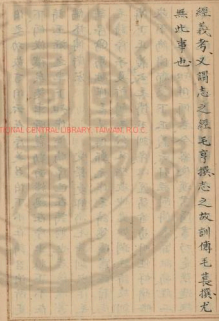 經義考又謂志之經毛亨撰志之故訓傳毛萇撰尤
無此事也
TIONAL CENTRAL LIBRARY, TAIWAN, R.O.C.